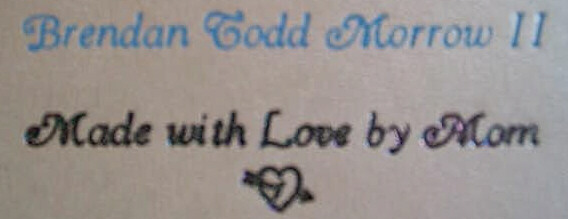 Brendan Todd Morrow II
Made with Love by Mom